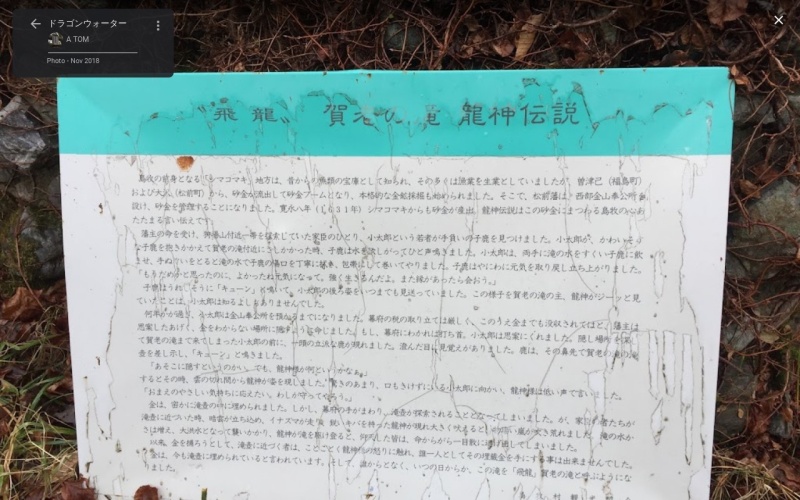 ドラゴンウォーター
A TOM
Photo - Nov 2018
〝飛龍〟 賀老の竜 龍神伝説
島牧の前身となる「シマコマキ」地方は、昔からの魚類の宝庫として知られ、その多くは漁業を生業としていましたが、曽津己（福島町）
および大沢（松前町）から、砂金が流出して砂金ブームとなり、本格的な金鉱採掘も始められました。そこで、松前藩は、西部金山奉公所を
設け、砂金を管理することになりました。寛永八年（1631年）シマコマキからも砂金が産出、龍神伝説はこの砂金にまつわる島牧の心あ
たたまる言い伝えです。
藩主の命を受け、狩場山付近一帯を探索していた家臣のひとり、小太郎という若者が手負いの子鹿を見つけました。小太郎が、かわいそう
な子鹿を抱きかかえて賀老の滝付近にさしかかった時、子鹿は水を欲しがってひと声鳴きました。小太郎は、両手に滝の水をすくい子鹿に飲
ませ、手ぬぐいをとると滝の水で子鹿の傷口を丁寧に拭き、包帯にして巻いてやりました。子鹿はやにわに元気を取り戻し立ち上がりました。
「もうだめかと思ったのに、よかったね元気になって。強く生きるんだよ。また縁があったら会おう。」
子鹿はうれしそうに「キューン」と鳴いて、小太郎の後ろ姿をいつまでも見送っていました。この様子を賀老の滝の主、龍神がジーッと見
ていたことは、小太郎は知るよしもありませんでした。
何年かが過ぎ、小太郎は金山奉公所を預かるまでになりました。幕府の税の取り立ては厳しく、このうえ金までも没収されてはと、藩主は
思案したあげく、金をわからない場所に隠すように命じました。もし、幕府にわかれば打ち首。小太郎は思案にくれました。隠し場所が
て賀老の滝まで来てしまった小太郎の前に、一頭の立派な鹿が現れました。澄んだ目に見覚えがありました。鹿は、その鼻先で賀老の滝の滝
壺を差し示し、「キューン」と鳴きました。
「あそこに隠すというのかい。でも、龍神様が何というかなぁ。」
するとその時、雲の切れ間から龍神が姿を現しました。驚きのあまり、口もきけずにいる小太郎に向かい、龍神様は低い声で言いました。
「おまえのやさしい気持ちに応えたい。わしが守ってやろう。」
金は、密かに滝壺の中に埋められました。しかし、幕府の手がまわり、滝壺が探索されることとなってしまいました。が、家臣の者たちが
滝壺に近づいた時、暗雲が立ち込め、イナズマが走り、鋭いキバを持った龍神が現れ大きく吠えると、その声は嵐が大き荒れました。滝の水か
さは増え、大洪水となって襲いかかり、龍神が滝を駆け登ると、何人した皆は、命からがら一目散に逃げ出してしまいました。
以来、金を捕ろうとして、滝壺に近づく者は、ことごとく龍神の怒りに触れ、誰一人としてその埋蔵金を手にする事は出来ませんでした。
金は、今も滝壺に埋められていると言われています。そして、誰からとなく、いつの日からか、この滝を「飛龍」賀老の滝と呼ぶようにな
りました。
島 牧 村